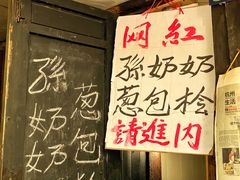 网紅
孫奶奶
葱包桧
請進内
孫奶奶
葱包桧
杭州
生活